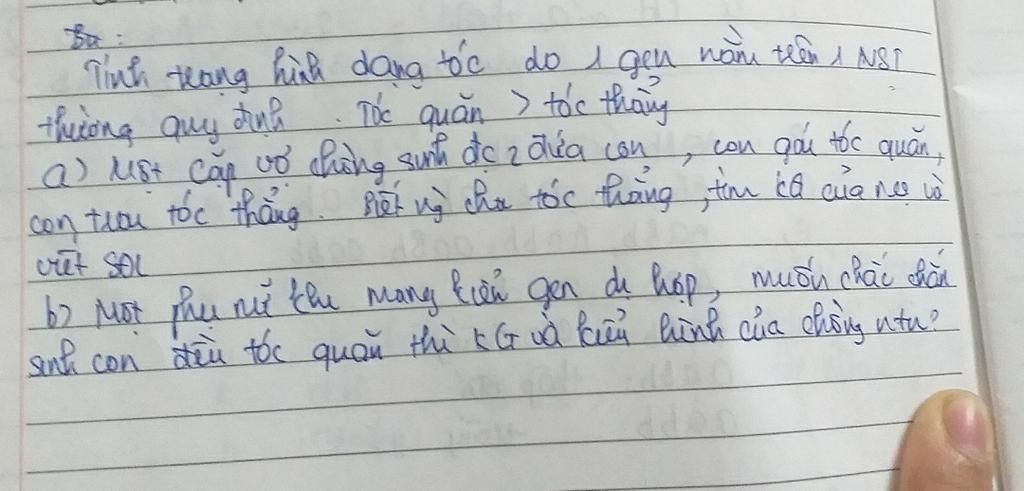 Bài:
Tính trạng hình dạng tóc do 1 gen nằm trên 1 NST
thường quy định. Tóc quăn > tóc thẳng
a) Một cặp vợ chồng sinh đc 2 đứa con, con gái tóc quăn,
con trai tóc thẳng. Biết ng cha tóc thẳng, tìm KG của mẹ và
viết SĐL
b) Một phụ nữ khi mang kiểu gen dị hợp, muốn chắc chắn
sinh con đều tóc quăn thì KG và kiểu hình của chồng ntn?